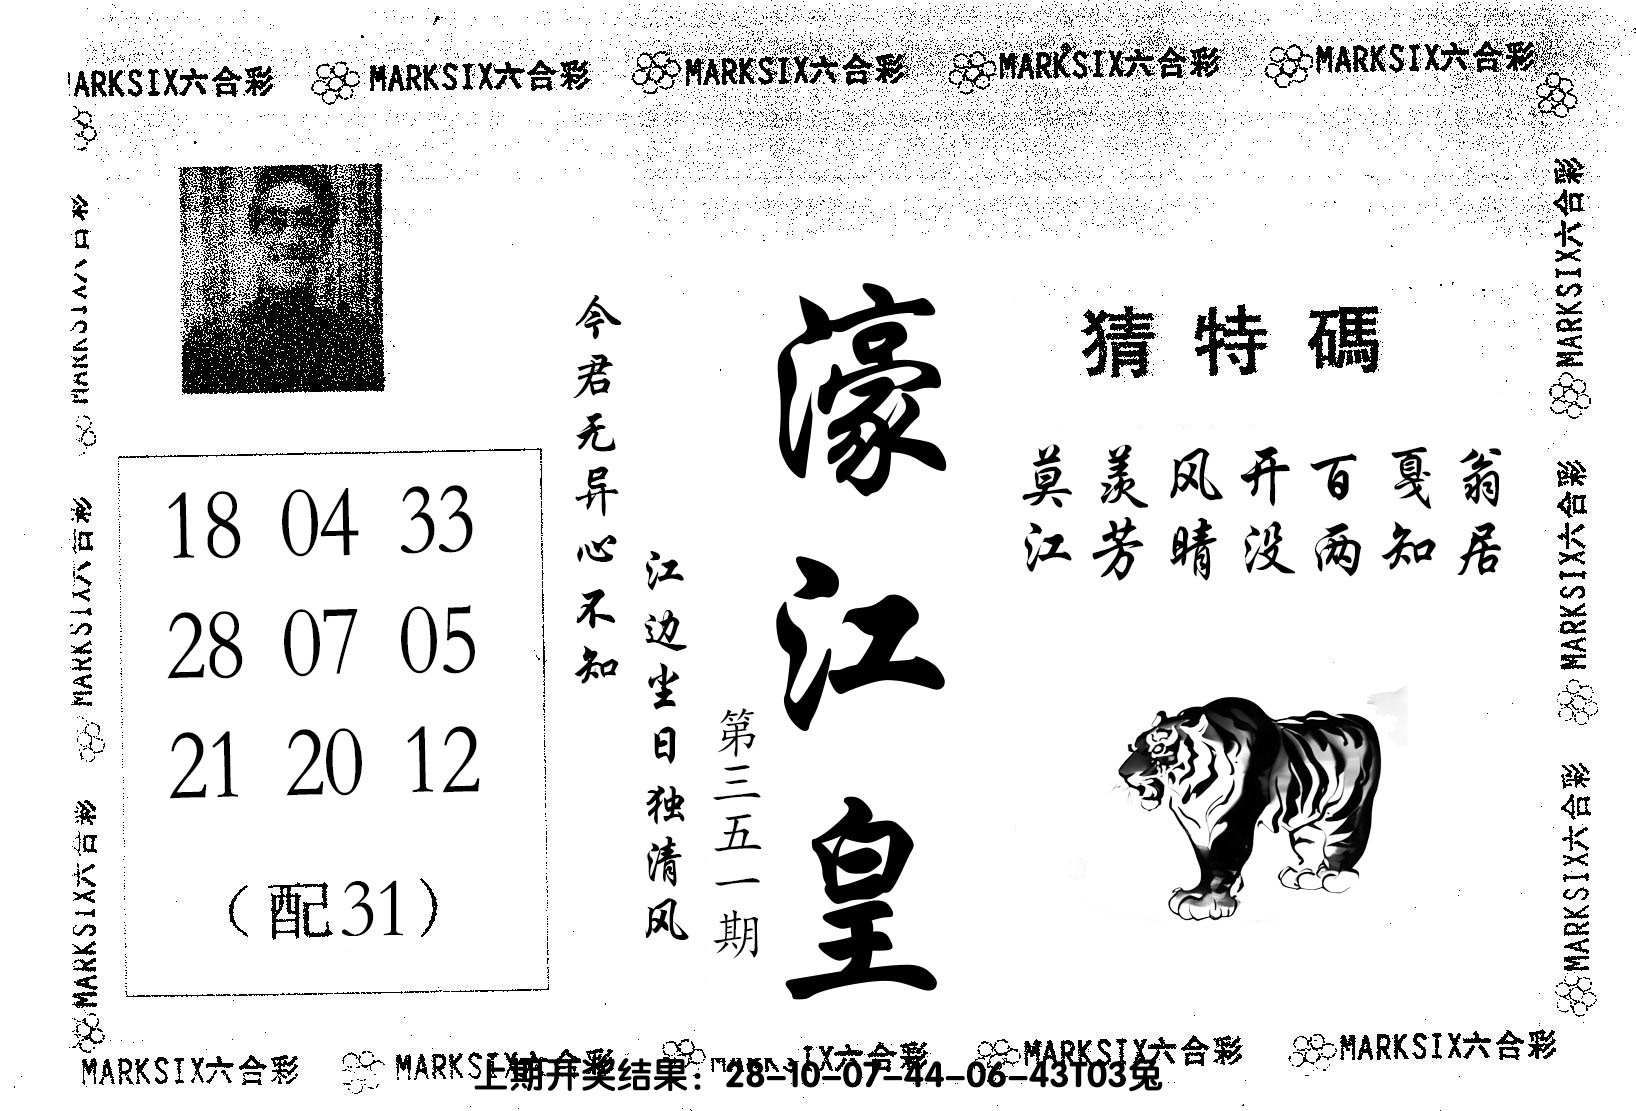 MARKSIX六合彩 MARKSIX六合彩 MARKSIX六合彩 MARKSIX六合彩 MARKSIX六合彩
MARKSIX六合彩
MARKSIX六合彩
MARKSIX六合彩
猜特碼
莫羡风开百戛翁
江芳晴没两知居
濠江皇
第三五一期
江边坐日独清风
今君无异心不知
18 04 33
28 07 05
21 20 12
(配31)
MARKSIX六合彩
MARKSIX六合彩
MARKSIX六合彩
MARKSIX六合彩 MARKSIX六合彩 MARKSIX六合彩 MARKSIX六合彩 MARKSIX六合彩
上期开奖结果：28-10-07-44-06-43T03兔